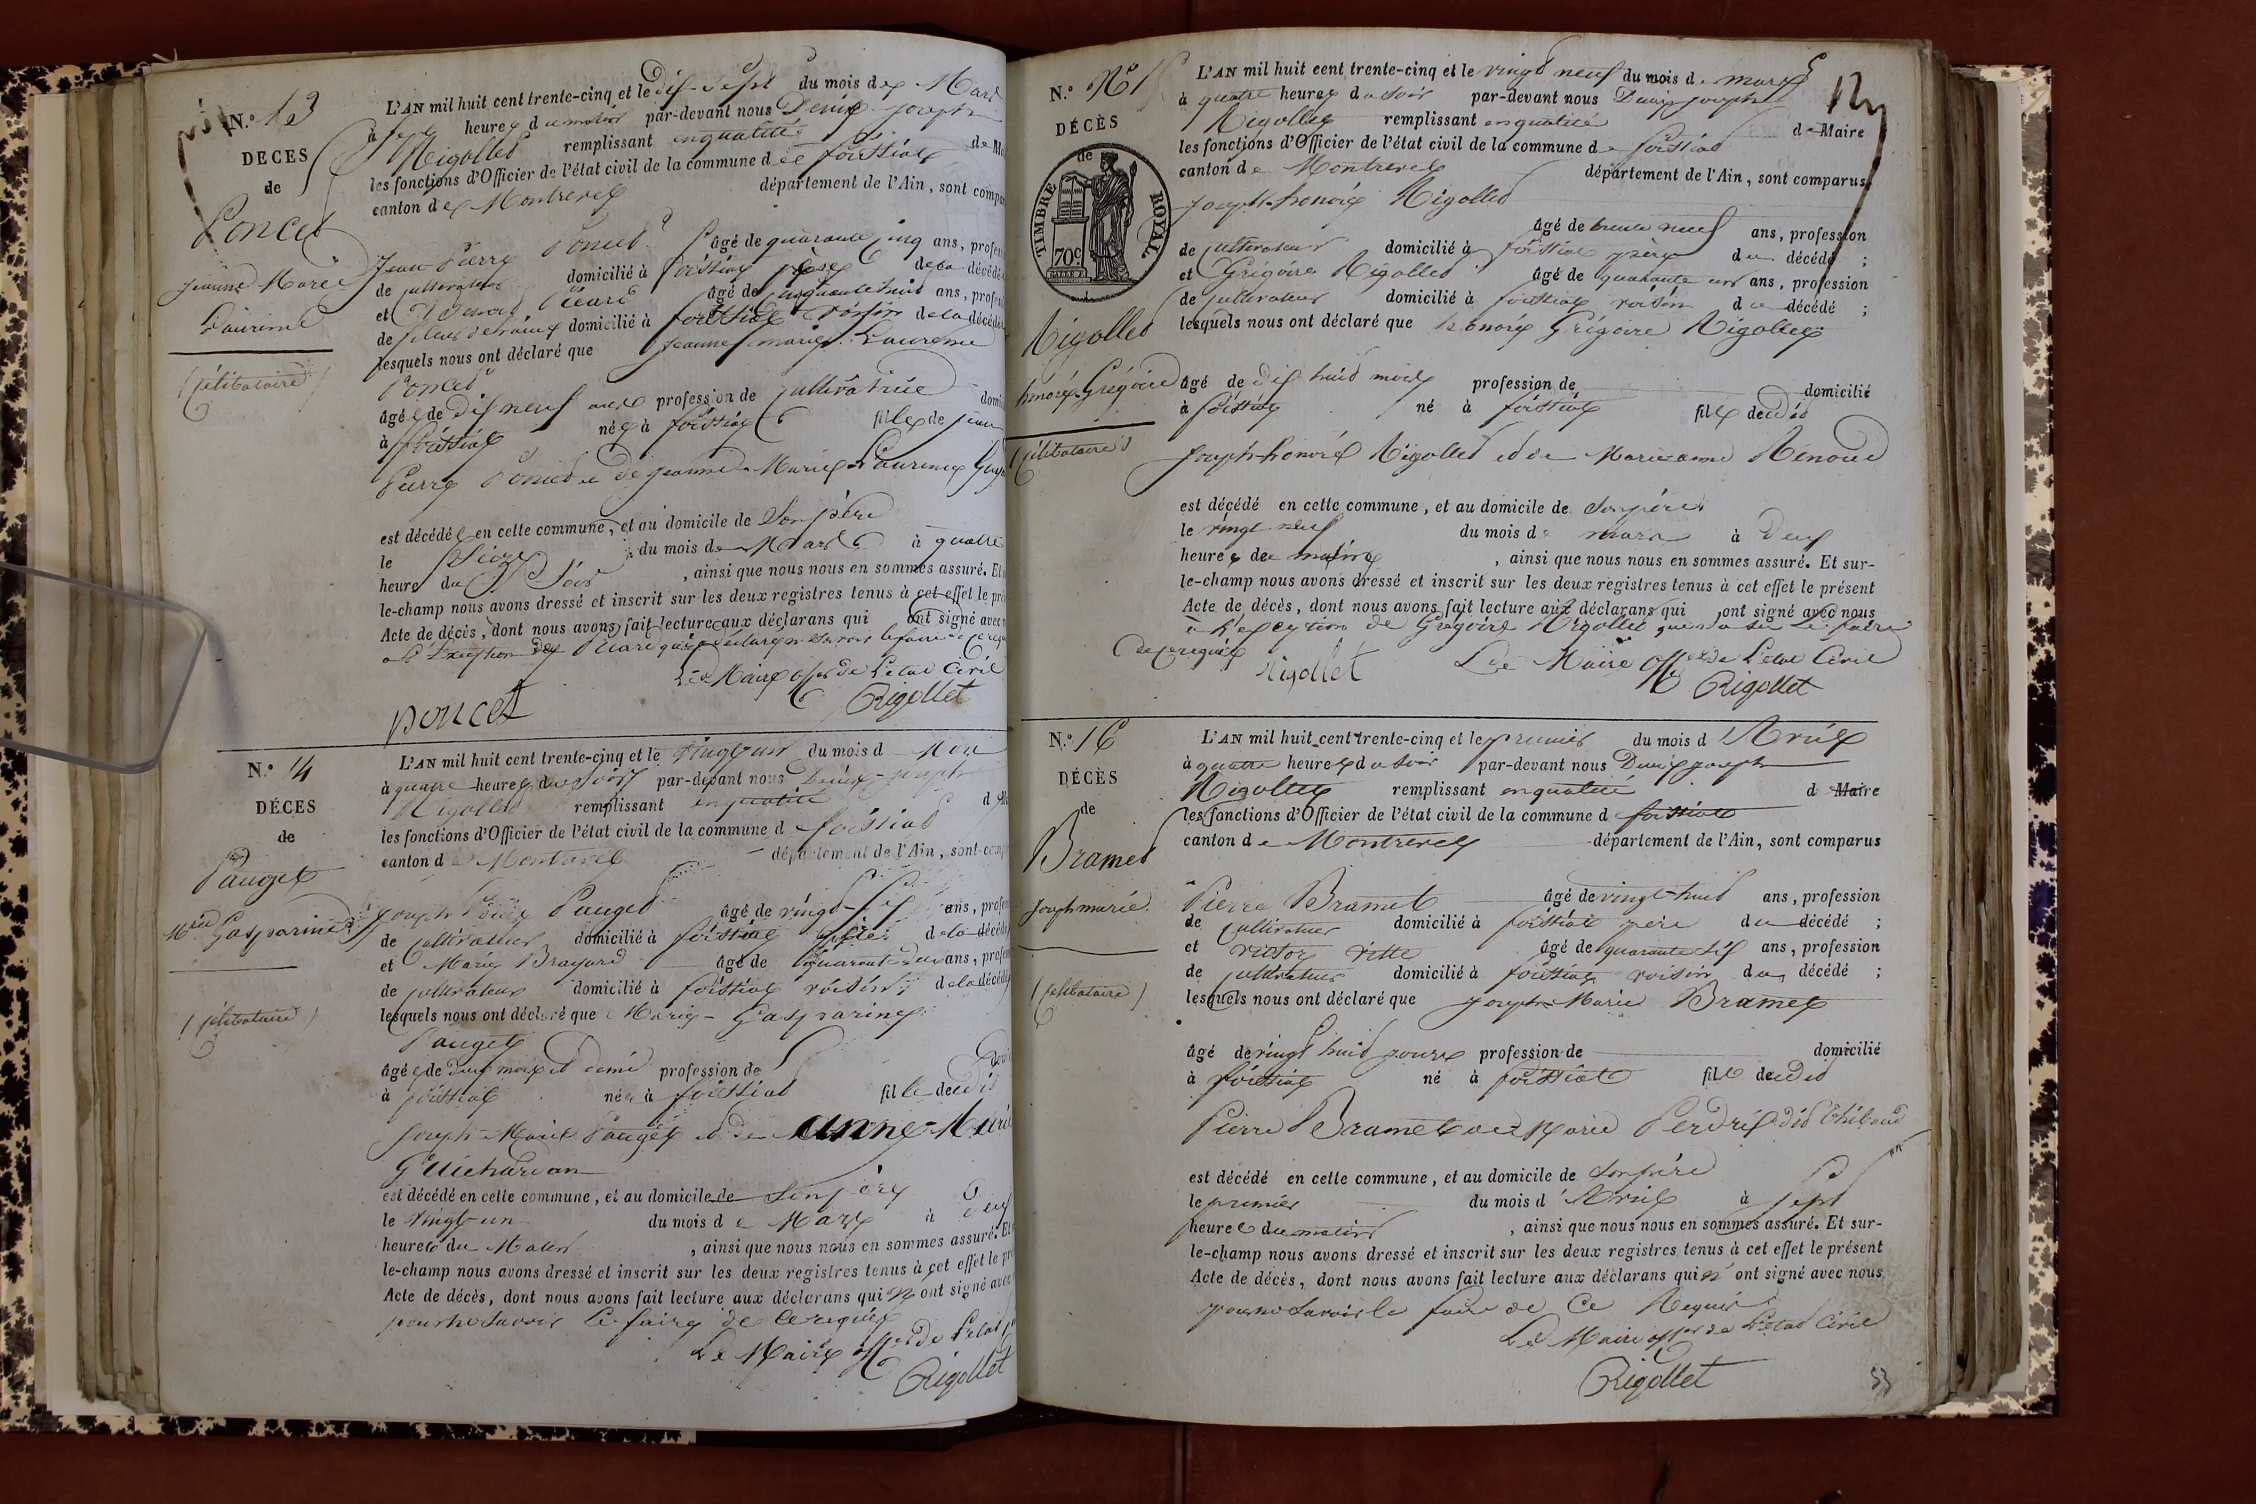 N.° 13
DECES
de
Poncet
Jeanne Marie
Laurence
(célibataire)
L'AN mil huit cent trente-cinq et le dix-sept du mois de Mars
à sept heures du matin par-devant nous Denis Joseph
Rigollet remplissant en qualité de
les fonctions d'Officier de l'état civil de la commune de foissiat
canton de Montrevel département de l'Ain, sont
Jean Pierre Poncet âgé de quarante cinq ans,
de cultivateur domicilié à foissiat père de la décédée
et Picard âgé de cinquante huit ans,
de domicilié à foissiat voisin de la décédée
lesquels nous ont déclaré que Jeanne marie Laurence
Poncet
âgée de dix neuf ans profession de cultivatrice
à foissiat née à foissiat fille de jean
Pierre Poncet et de jeanne Marie Laurence
est décédée en cette commune, et au domicile de Son père
le Seize du mois de Mars à quatre
heure du Soir , ainsi que nous nous en sommes assuré. Et
le-champ nous avons dressé et inscrit sur les deux registres tenus à cet effet le
Acte de décès, dont nous avons fait lecture aux déclarans qui ont signé avec
a l'Exception de Picard qui a déclaré ne savoir le faire de ce requis
Le Maire offer de L'etat Civil
poncet Rigollet
N.° 14
DÉCES
de
Pauget
Mie Gasparine
(célibataire)
L'AN mil huit cent trente-cinq et le vingt-un du mois d Mars
à quatre heures du Soir par-devant nous Denis-Joseph
Rigollet remplissant en qualité d
les fonctions d'Officier de l'état civil de la commune d foissiat
canton de Montrevel département de l'Ain, sont
Joseph Marie Pauget âgé de vingt-six ans,
de cultivateur domicilié à foissiat père de la décédée
et Marie Brayard âgé de quarante ans,
de cultivateur domicilié à foissiat voisin de la décédée
lesquels nous ont déclaré que Marie-Gasparine
Pauget
âgée de deux mois et demi profession de
à foissiat née à foissiat fille de
Joseph-Marie Pauget et de anne-Marie
Guichardan
est décédé en cette commune, et au domicile de Son père
le vingt-un du mois de Mars à deux
heures du Matin , ainsi que nous nous en sommes assuré. Et
le-champ nous avons dressé et inscrit sur les deux registres tenus à cet effet le
Acte de décès, dont nous avons fait lecture aux déclarans qui n' ont signé avec
pour ne Savoir Le faire de Ce requis
Le Maire offer de L'etat
Rigollet
12
N.° 15
DÉCÈS
de
TIMBRE ROYAL
70c
Rigollet
honoré Grégoire
(célibataire)
L'AN mil huit cent trente-cinq et le vingt neuf du mois de mars
à quatre heures du soir par-devant nous Denis joseph
Rigollet remplissant en qualité de Maire
les fonctions d'Officier de l'état civil de la commune de foissiat
canton de Montrevel département de l'Ain, sont comparus
joseph-honoré Rigollet âgé de trente neuf ans, profession
de cultivateur domicilié à foissiat père du décédé ;
et Grégoire Rigollet âgé de quarante un ans, profession
de cultivateur domicilié à foissiat voisin du décédé ;
lesquels nous ont déclaré que honoré Grégoire Rigollet
âgé de dix huit mois profession de domicilié
à foissiat né à foissiat fils de
joseph-honoré Rigollet et de Marie anne Renoud
est décédé en cette commune, et au domicile de Son père
le vingt neuf du mois de mars à deux
heures de matin , ainsi que nous nous en sommes assuré. Et sur-
le-champ nous avons dressé et inscrit sur les deux registres tenus à cet effet le présent
Acte de décès, dont nous avons fait lecture aux déclarans qui ont signé avec nous
a l'exception de Grégoire Rigollet qui n'a su Le faire
de ce requis
Le Maire offer de L'etat Civil
Rigollet Rigollet
N.° 16
DÉCÈS
de
Bramet
Joseph marie
(célibataire)
L'AN mil huit cent trente-cinq et le premier du mois d Avril
à quatre heures du soir par-devant nous Denis joseph
Rigollet remplissant en qualité d Maire
les fonctions d'Officier de l'état civil de la commune d foissiat
canton de Montrevel département de l'Ain, sont comparus
Pierre Bramet âgé de vingt-huit ans, profession
de cultivateur domicilié à foissiat père du décédé ;
et victor vitte âgé de quarante six ans, profession
de cultivateur domicilié à foissiat voisin du décédé ;
lesquels nous ont déclaré que joseph-Marie Bramet
âgé de vingt huit jours profession de domicilié
à foissiat né à foissiat fils de
Pierre Bramet et de Marie Perdrix dit Thibaud
est décédé en cette commune, et au domicile de Son père
le premier du mois d'Avril à sept
heures du matin , ainsi que nous nous en sommes assuré. Et sur-
le-champ nous avons dressé et inscrit sur les deux registres tenus à cet effet le présent
Acte de décès, dont nous avons fait lecture aux déclarans qui n' ont signé avec nous
pour ne Savoir le faire de Ce Requis
Le Maire offer de L'etat Civil
Rigollet
53